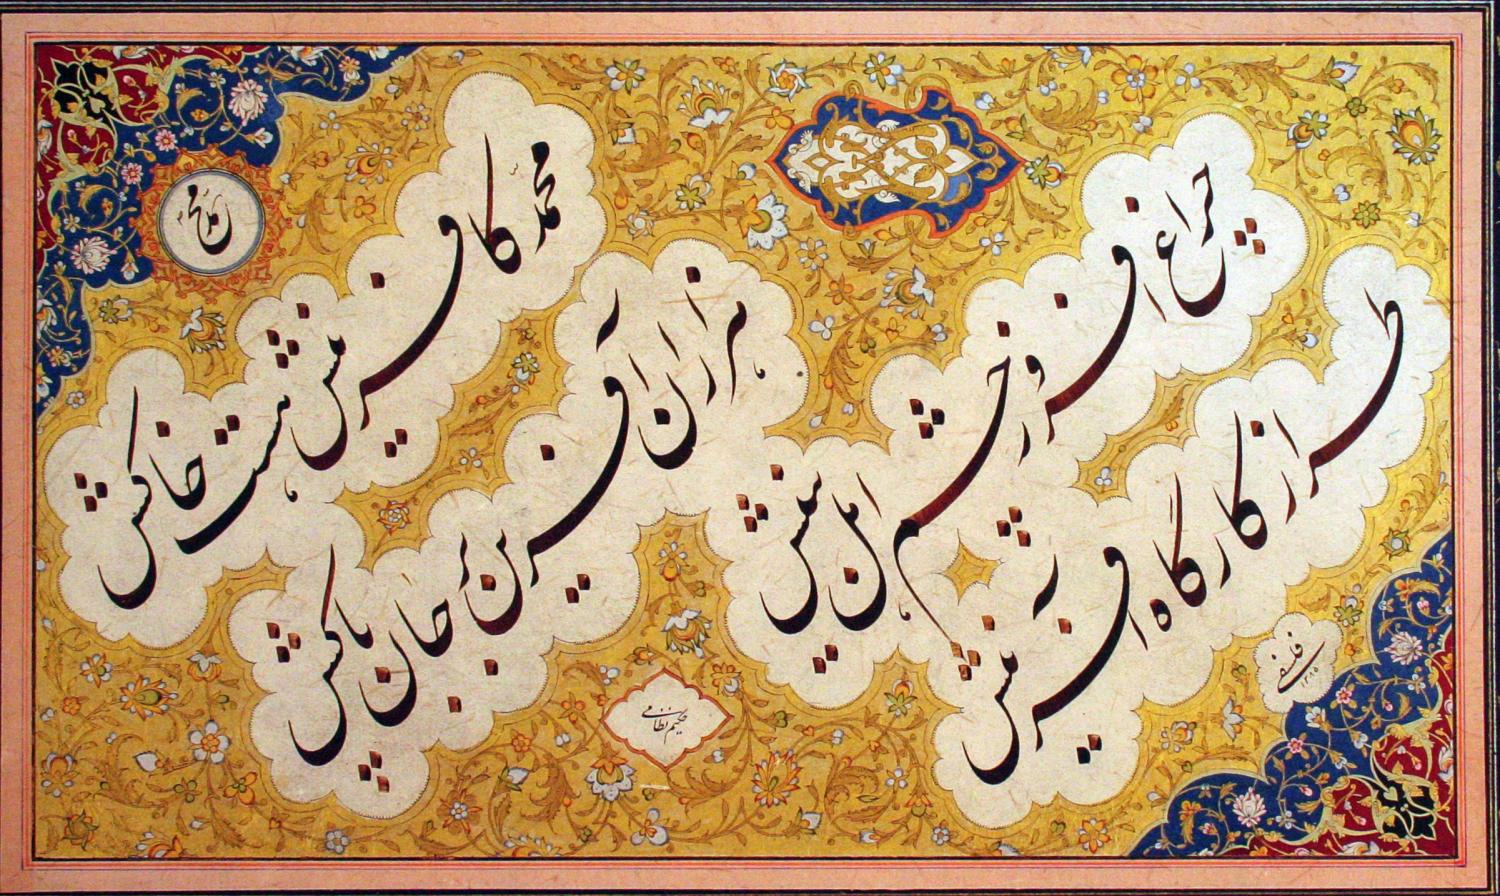 محمد کافرینش هست خاکش
هزاران آفرین بر جان پاکش
چراغ افروز چشم اهل بینش
طراز کارگاه آفرینش
محمد
حکیم نظامی
فلسفی ۱۳۸۵